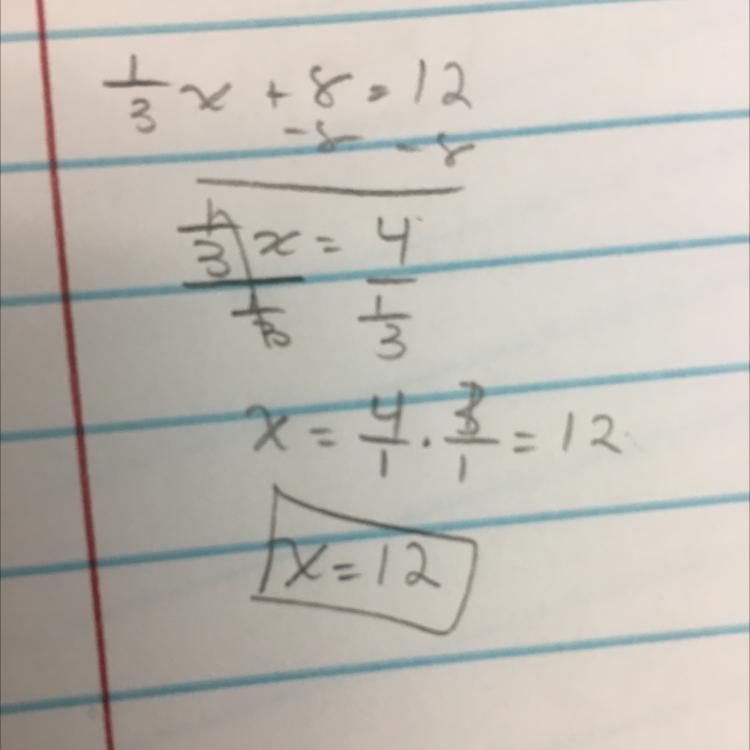 1/3 x + 8 = 12
-8 -8
1/3 x = 4
1/3 1/3
x = 4/1 · 3/1 = 12
x = 12